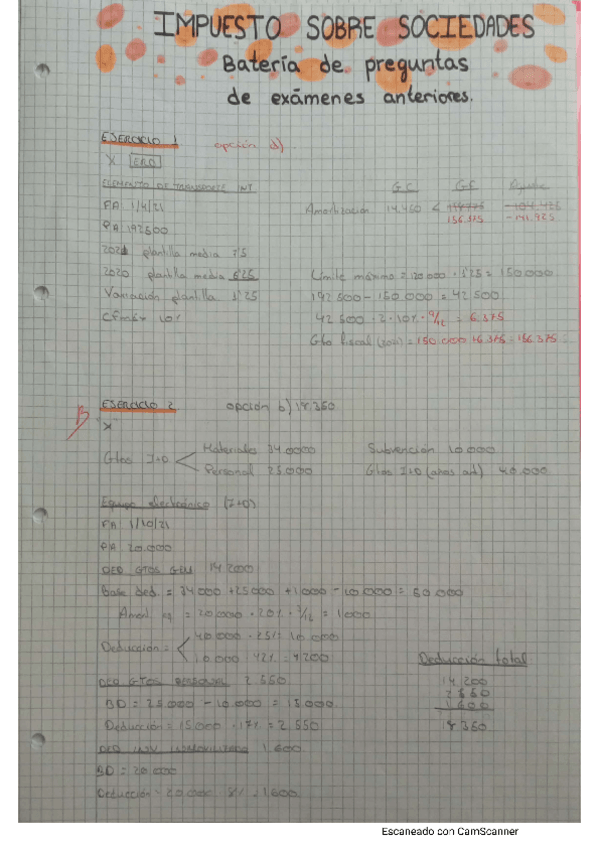 IMPUESTO SOBRE SOCIEDADES
Batería de preguntas
de exámenes anteriores.
EJERCICIO 1 opción d)
X ERD
ELEMENTO DE TRANSPORTE INT. G.C G.F
FA: 1/4/21 Amortización 14.450 < 156.375 -141.925
PA: 192500
2021 plantilla media 7'5
2020 plantilla media 6'25 Límite máximo = 120.000 · 1'25 = 150.000
Variación plantilla 1'25 192 500 - 150 000 = 42 500
10% 42 500 · 2 · 10% · 9/12 = 6.375
Gto fiscal (2021) = 150.000 + 6.375 = 156.375
EJERCICIO 2 opción b) 18.350
X
Gtos I+D Materiales 34.0000 Subvención 10.000
Personal 25.000 Gtos I+D (años ant) 40.000
Equipo electrónico (I+D)
FA: 1/10/21
PA: 20.000
DED GTOS GEN. 14.200
Base ded. = 34 000 + 25000 + 1000 - 10.000 = 50.000
Amort. eq. = 20.000 · 20% · 3/12 = 1000
Deducción = 40.000 · 25% = 10.000
10.000 · 42% = 4200
Deducción total
DED GTOS PERSONAL 2.550 14.200
BD = 25.000 - 10.000 = 15.000 2.550
1.600
Deducción = 15.000 · 17% = 2.550 18.350
DED INV INMOVILIZADO 1.600
BD = 20.000
Deducción = 20.000 · 8% = 1.600
Escaneado con CamScanner